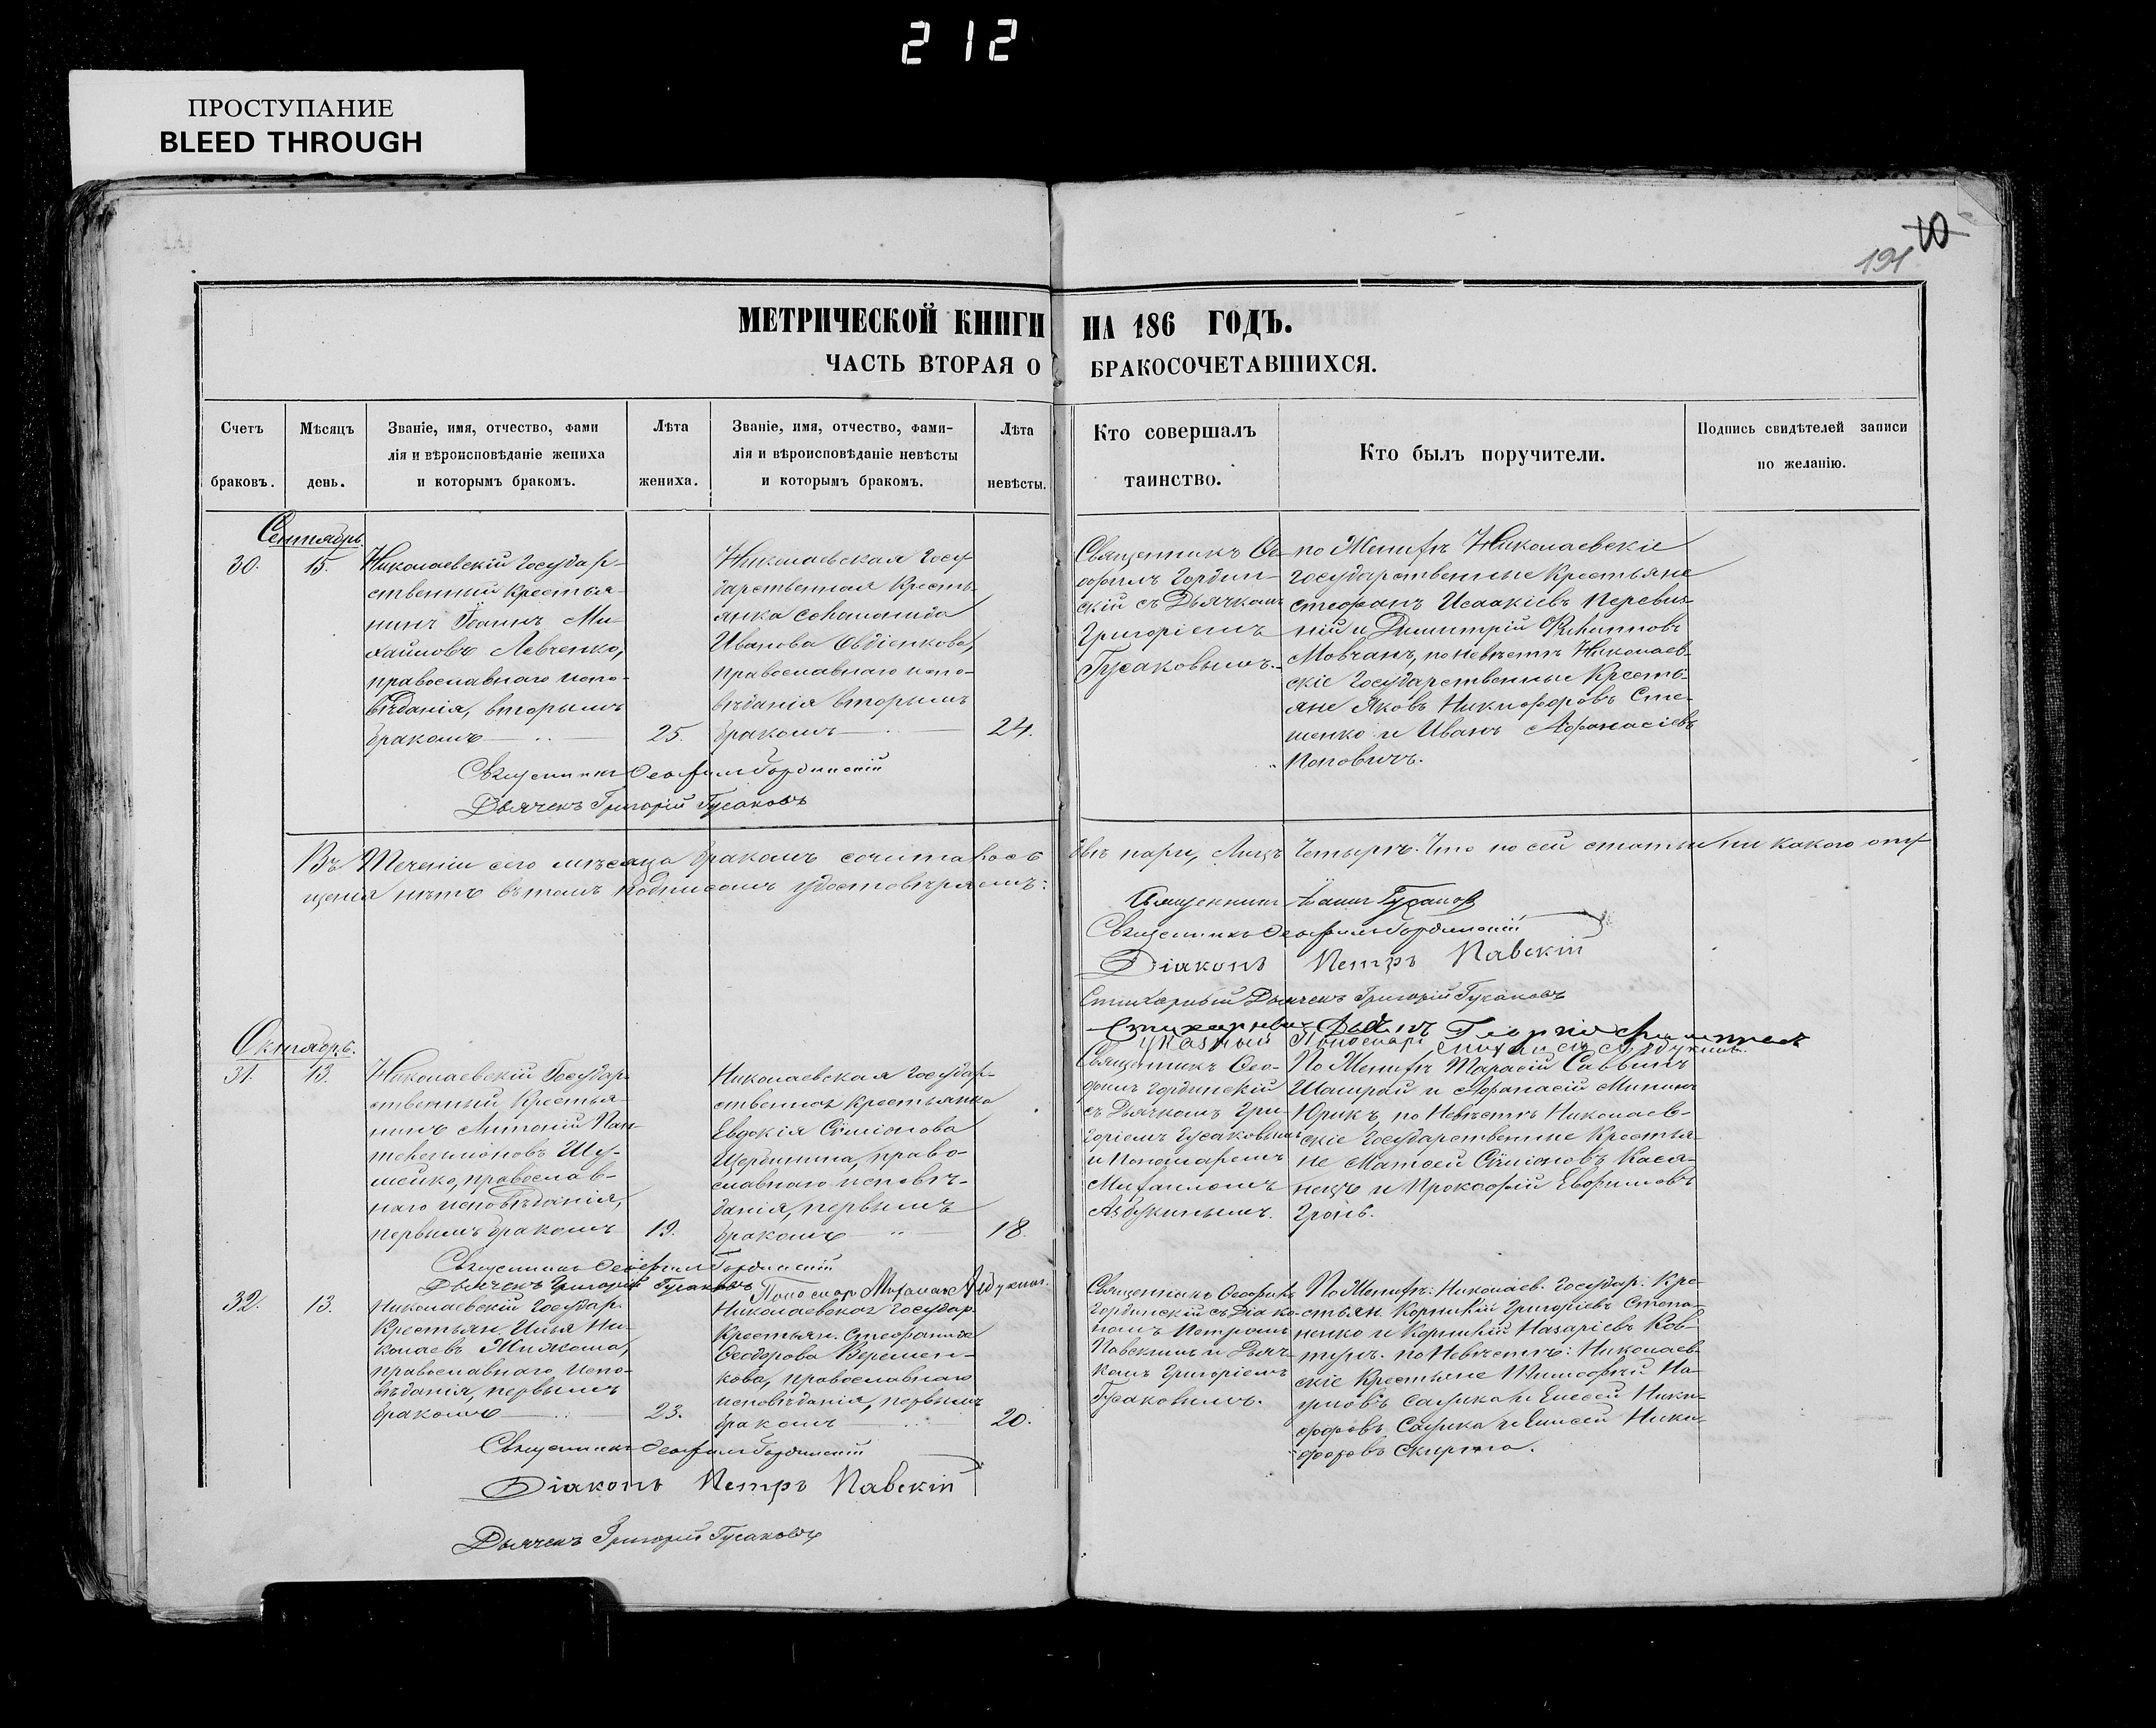 212
ПРОСТУПАНИЕ
BLEED THROUGH
10
191
МЕТРИЧЕСКОЙ КНИГИ НА 186 ГОДЪ.
ЧАСТЬ ВТОРАЯ О БРАКОСОЧЕТАВШИХСЯ.
Счетъ
браковъ.
Мѣсяцъ
день.
Званіе, имя, отчество, фами
лія и вѣроисповѣданіе жениха
и которымъ бракомъ.
Лѣта
жениха.
Званіе, имя, отчество, фами-
лія и вѣроисповѣданіе невѣсты
и которымъ бракомъ.
Лѣта
невѣсты.
Кто совершалъ
таинство.
Кто былъ поручители.
Подпись свидѣтелей записи
по желанію.
Сентябрь.
30.
15.
Николаевскій Государ-
ственный Крестья-
нинъ Іоаннъ Ми-
хайловъ Левченко,
православнаго испо-
вѣданія, вторымъ
бракомъ
25.
Николаевская Госу-
дарственная Кресть-
янка Соломонида
Иванова Овдіенкова,
православнаго испо-
вѣданія вторымъ
бракомъ
24.
Священникъ Ѳе-
офилъ Гордин-
скій съ Дьячкомъ
Григоріемъ
Гусаковымъ.
по Женихѣ Николаевскіе
государственные Крестьяне
Стефанъ Исаакіевъ
и Димитрій
Мовчанъ, по невѣстѣ Николаев-
скіе Государственные Кресть-
яне Яковъ Никифоровъ Сте-
ценко и Иванъ Афанасіевъ
Поповичъ.
Священникъ Ѳеофилъ Гординскій
Дьячекъ Григорій Гусаковъ
Въ Теченіи сего мѣсяца бракомъ сочиталось двѣ пары, Лицъ Четыре. Что по сей статьи ни какого опу-
щенія нѣтъ въ томъ подписомъ удостовѣряемъ:
Священникъ Іоаннъ Гусаков
Священникъ Ѳеофилъ Гординскій
Діаконъ Петръ Павскій
Стихарный Дьячекъ Григорій Гусаковъ
Пономарь Михаилъ Азбукинъ.
Октябрь.
31.
13.
Николаевскій Государ-
ственный Крестья-
нинъ Антоній Пан-
телеимоновъ Шу-
мейко, православ-
наго исповѣданія,
первымъ бракомъ
19.
Николаевская Государ-
ственная крестьянка
Евдокія Сѵміонова
Щербинина, право-
славнаго исповѣ-
данія, первымъ
бракомъ
18.
Священникъ Ѳео-
филъ Гординскій
съ Дьячкомъ Гри-
горіемъ Гусаковымъ
и Пономаремъ
Михаиломъ
Азбукинымъ.
По Женихѣ Тарасій Саввинъ
Шапрай и Афанасій Мининъ
Юрикъ, по Невѣстѣ Николаев-
скіе Государственные Крестья-
не Матѳей Сѵміоновъ Кася-
нецъ и Прокофій Евфимовъ
Гронь.
Священникъ Ѳеофилъ Гординскій
Дьячекъ Григорій Гусаковъ
Пономар Михаилъ Азбукинъ.
32.
13.
Николаевскій Государ.
Крестьян. Илья Ни-
колаевъ
православнаго испо-
вѣданія, первымъ
бракомъ
23.
Николаевская Государ.
Крестьян. Стефанида
Ѳеодорова Веремен-
кова, православнаго
исповѣданія, первымъ
бракомъ
20.
Священникъ Ѳеофилъ
Гординскій съ Діако-
номъ Петромъ
Павскимъ и Дьяч-
комъ Григоріемъ
Гусаковымъ.
По Женихѣ: Николаев. Государ. Кре-
стьян. Корнилій Григоріевъ Степа-
ненко и Корнилій Назаріевъ Ков-
тунъ. по Невѣстѣ: Николаев-
скіе Крестьяне Тимофей На-
умовъ Саулка и Елисей Ники-
форовъ Саулка и Елисей Ники-
форовъ Скирта.
Священникъ Ѳеофилъ Гординскій
Діаконъ Петръ Павскій
Дьячекъ Григорій Гусаковъ